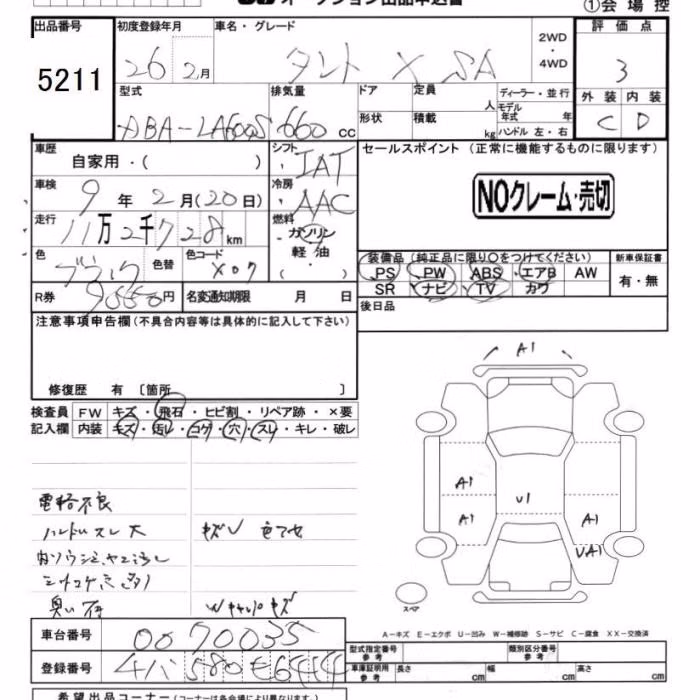 オークション出品申込書 ①会場控
出品番号 初度登録年月 車名・グレード 評価点
5211 26 2月 タント X SA 2WD・4WD 3
型式 排気量 ドア 定員 人 ディーラー・並行 外装 内装
ABA-LA600S 660 cc 形状 積載 kg モデル年式 年 ハンドル 左・右 C D
車歴 自家用・( ) シフト IAT セールスポイント (正常に機能するものに限ります)
車検 9年2月(20日) 冷房 AAC NOクレーム・売切
走行 11万2千728km 燃料 ガソリン 軽油 ( )
色 色替 色コード X07
装備品 (純正品に限り○をつけてください) 新車保証書
PS PW ABS エアB AW 有・無
SR ナビ TV カワ
R券 円 名変通知期限 月 日 後日品
注意事項申告欄 (不具合内容等は具体的に記入して下さい)
修復歴 有 〔箇所 〕
検査員 FW キズ・飛石・ヒビ割・リペア跡・×要
記入欄 内装 キズ・汚レ・コゲ・穴・スレ・キレ・破レ
A1
A1 A1 U1 A1 UA1
電格不良
ハンドルスレ大 キズU 色アセ
シートコゲ穴多数
臭い有 Wキャリパキズ
スペア
A-キズ E-エクボ U-凹み W-補修跡 S-サビ C-腐食 XX-交換済
車台番号 0070035
登録番号 580 6444
型式指定番号 参考 類別区分番号 参考
車庫証明用 参考 長さ cm 幅 cm 高さ cm
希望出品コーナー (コーナーは各会場により異なります。)